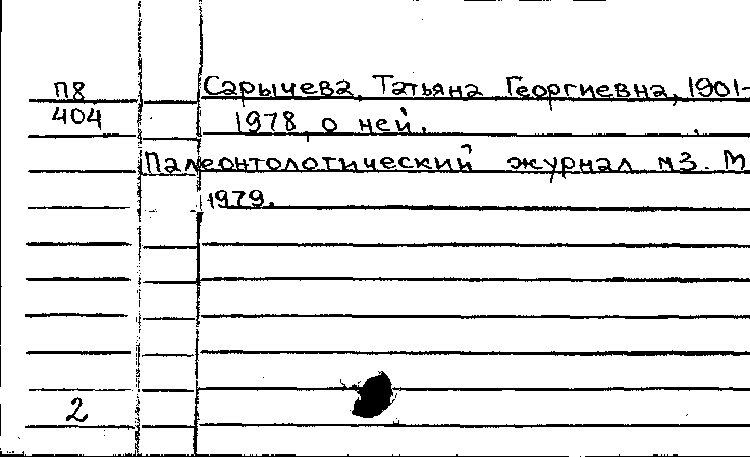 П8
404
Сарычева, Татьяна Георгиевна, 1901-
1978, о ней.
Палеонтологический журнал №3. М
1979.
2